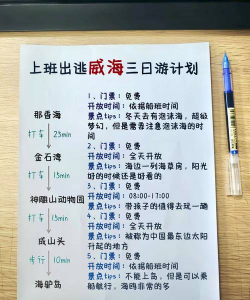 上班出逃威海三日游计划
那香海
打车 23min
金石湾
打车 13min
神雕山动物园
打车 13min
成山头
步行 10min
海驴岛
1、门票：免费
开放时间：依据船班时间
景点tips：冬天去有泡沫海，超级
梦幻，但是需要注意泡沫海的时
间
2、门票：免费
开放时间：全天开放
景点tips：海边一列海草房，阳光
好的时候还是好看的
3、门票：免费
开放时间：08:00-17:00
景点tips：带孩子的值得去玩一趟
4、门票：免费
开放时间：全天开放
景点tips：被称为中国最东边太阳
升起的地方
5、门票：免费
开放时间：依据船班时间
景点tips：不能上岛，但是可以乘
船航行，海鸥非常的多